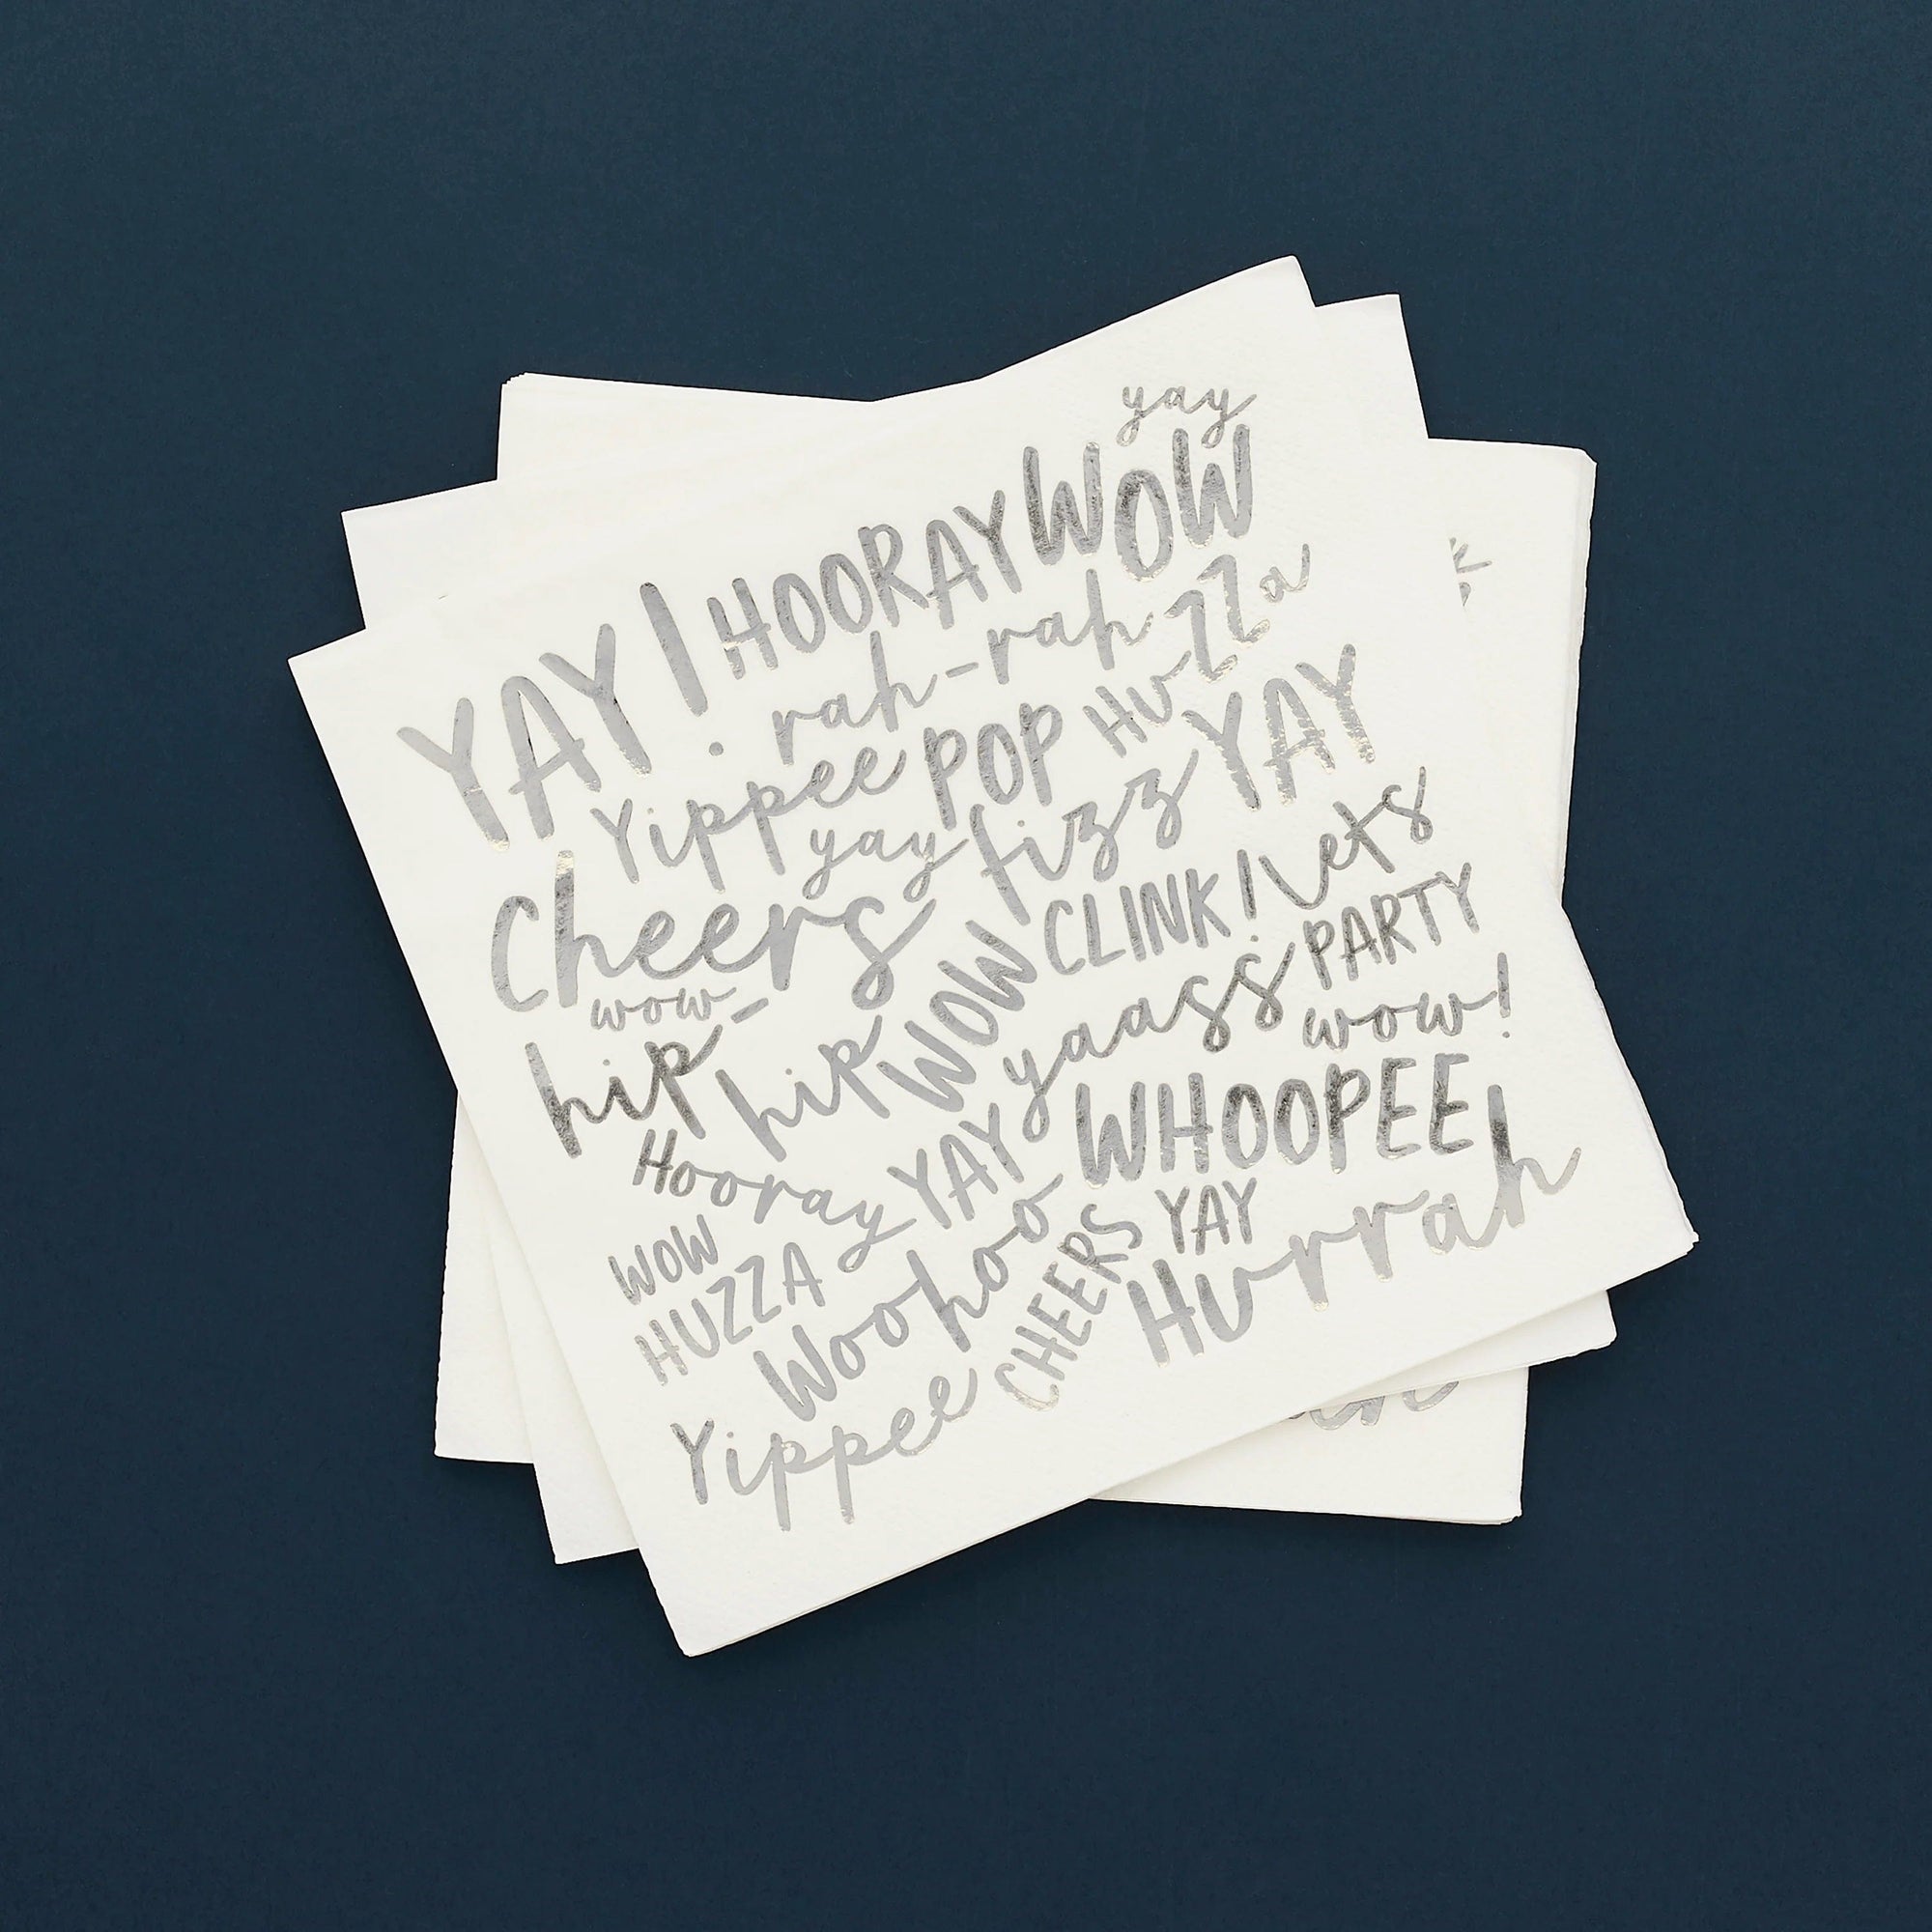 yay
YAY! HOORAY WOW
rah-rah Huzza
Yippee POP YAY
yay fizz
Cheers CLINK! Let's
wow WOW PARTY
hip-hip yaass wow!
Hooray YAY WHOOPEE
WOW
HUZZA Woohoo CHEERS YAY
Yippee Hurrah